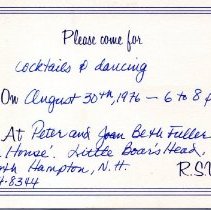 Please come for
cocktails & dancing
On August 30th, 1976 — 6 to 8 p
At Peter and Joan Beth Fuller
House'. Little Boar's Head,
th Hampton, N.H.
4-8344
R.S.V